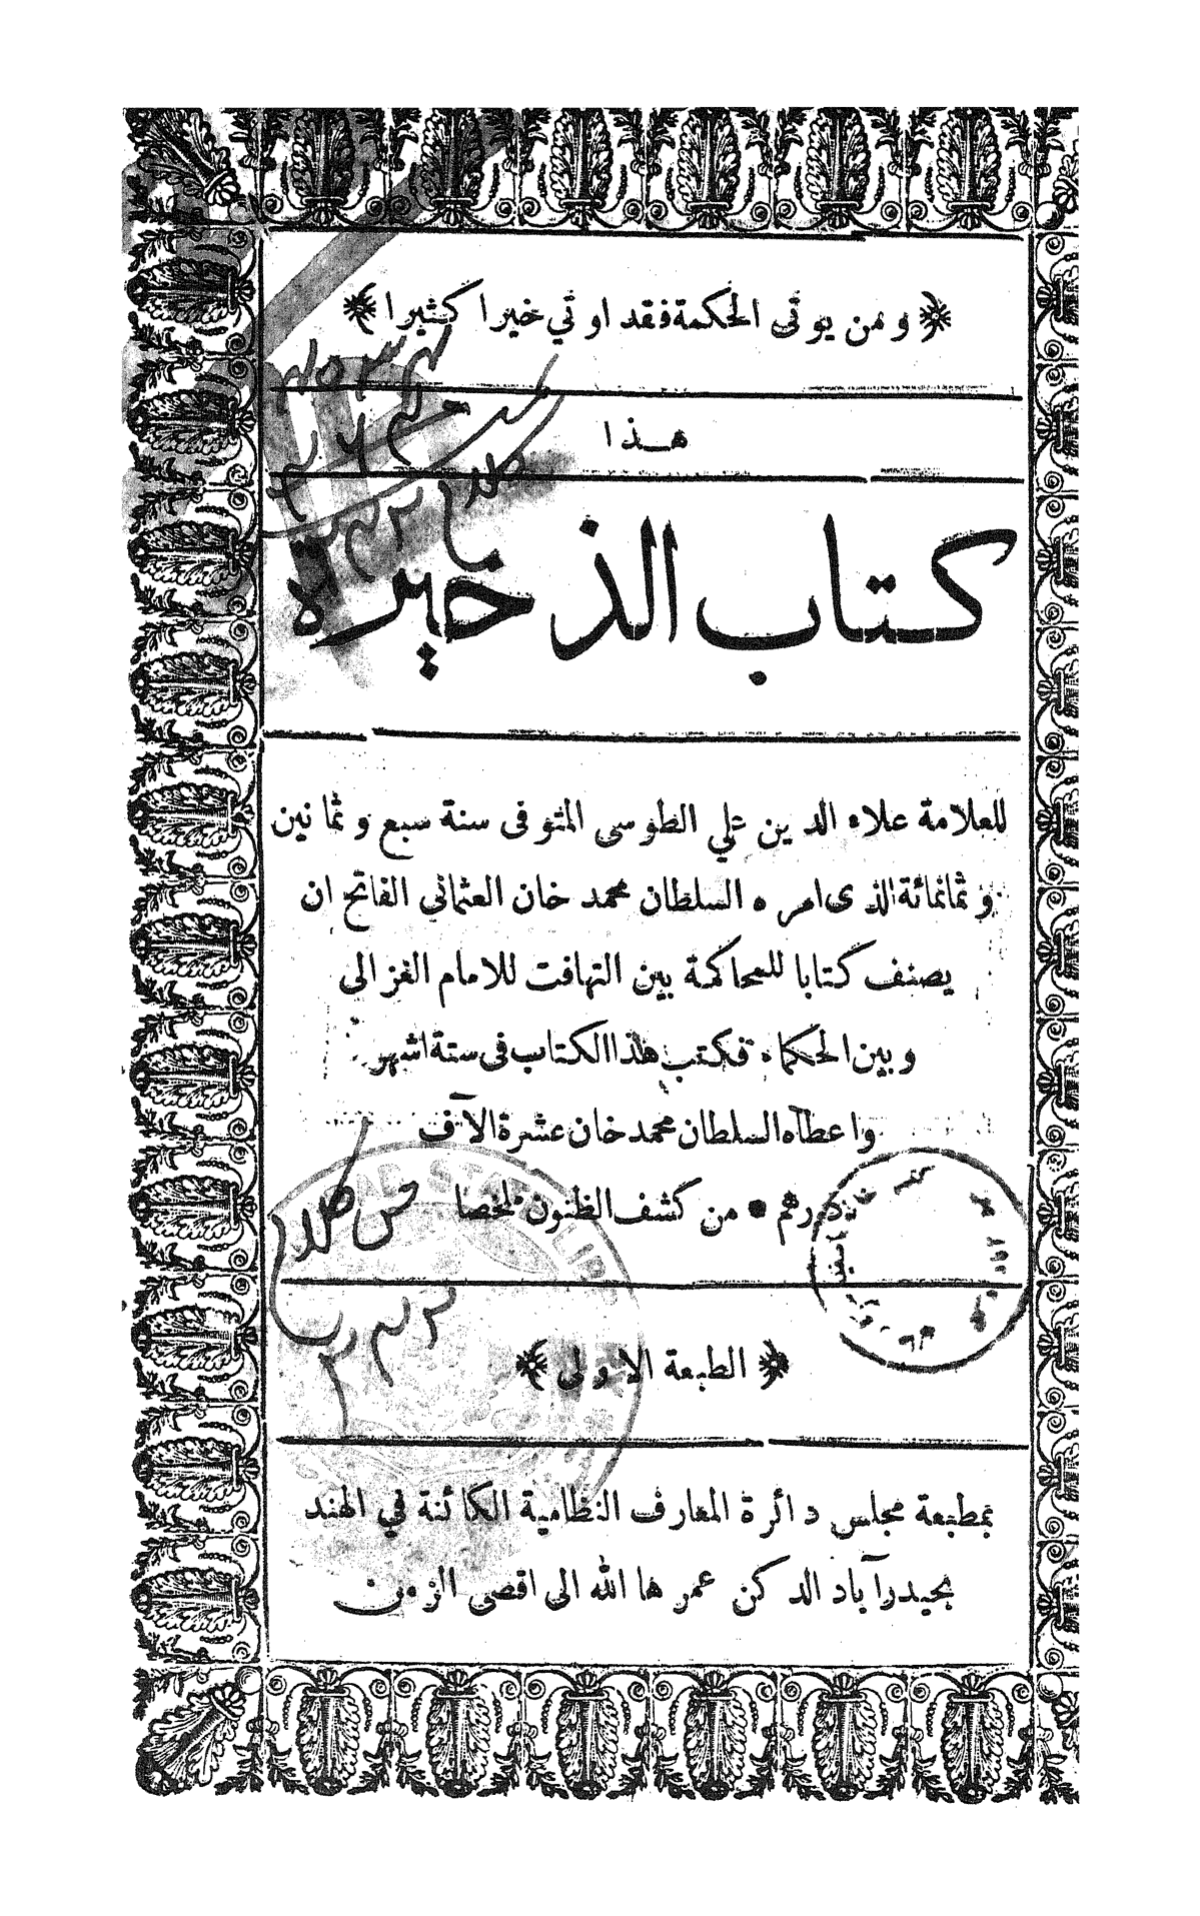 ﴿ ومن يوتى الحكمة فقد اوتي خيرا كثيرا ﴾
هذا
كتاب الذخيره
للعلامة علاء الدين علي الطوسى المتوفى سنة سبع وثمانين
وثمانمائة الذى امره السلطان محمد خان العثماني الفاتح ان
يصنف كتابا للمحاكمة بين التهافت للامام الغزالى
وبين الحكماء فكتب هذا الكتاب فى ستة اشهر
واعطاه السلطان محمد خان عشرة الآف
درهم • من كشف الظنون ملخصا
﴿ الطبعة الاولى ﴾
بمطبعة مجلس دائرة المعارف النظامية الكائنة في الهند
بحيدرآباد الدكن عمرها الله الى اقصى الزمن